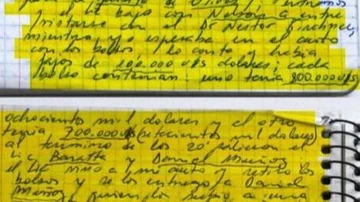 el Lic bajo con Nelson a entre
vistarse Dr Nestor
mientras yo esperaba en el auto
con los bolsos, le conte y habia
fajos de 100.000 u$s dolares; cada
bolso contenian uno tenia 800.000 u$s
ochocientos mil dolares y el otro
tenia 700.000 u$s (setecientos mil dolares)
al termino de los 20' salieron el
Lic Baratta y Daniel Muñoz
el Lic vino a mi auto y retiro los
bolsos y se los entrego a Daniel
Muñoz, quien los a una